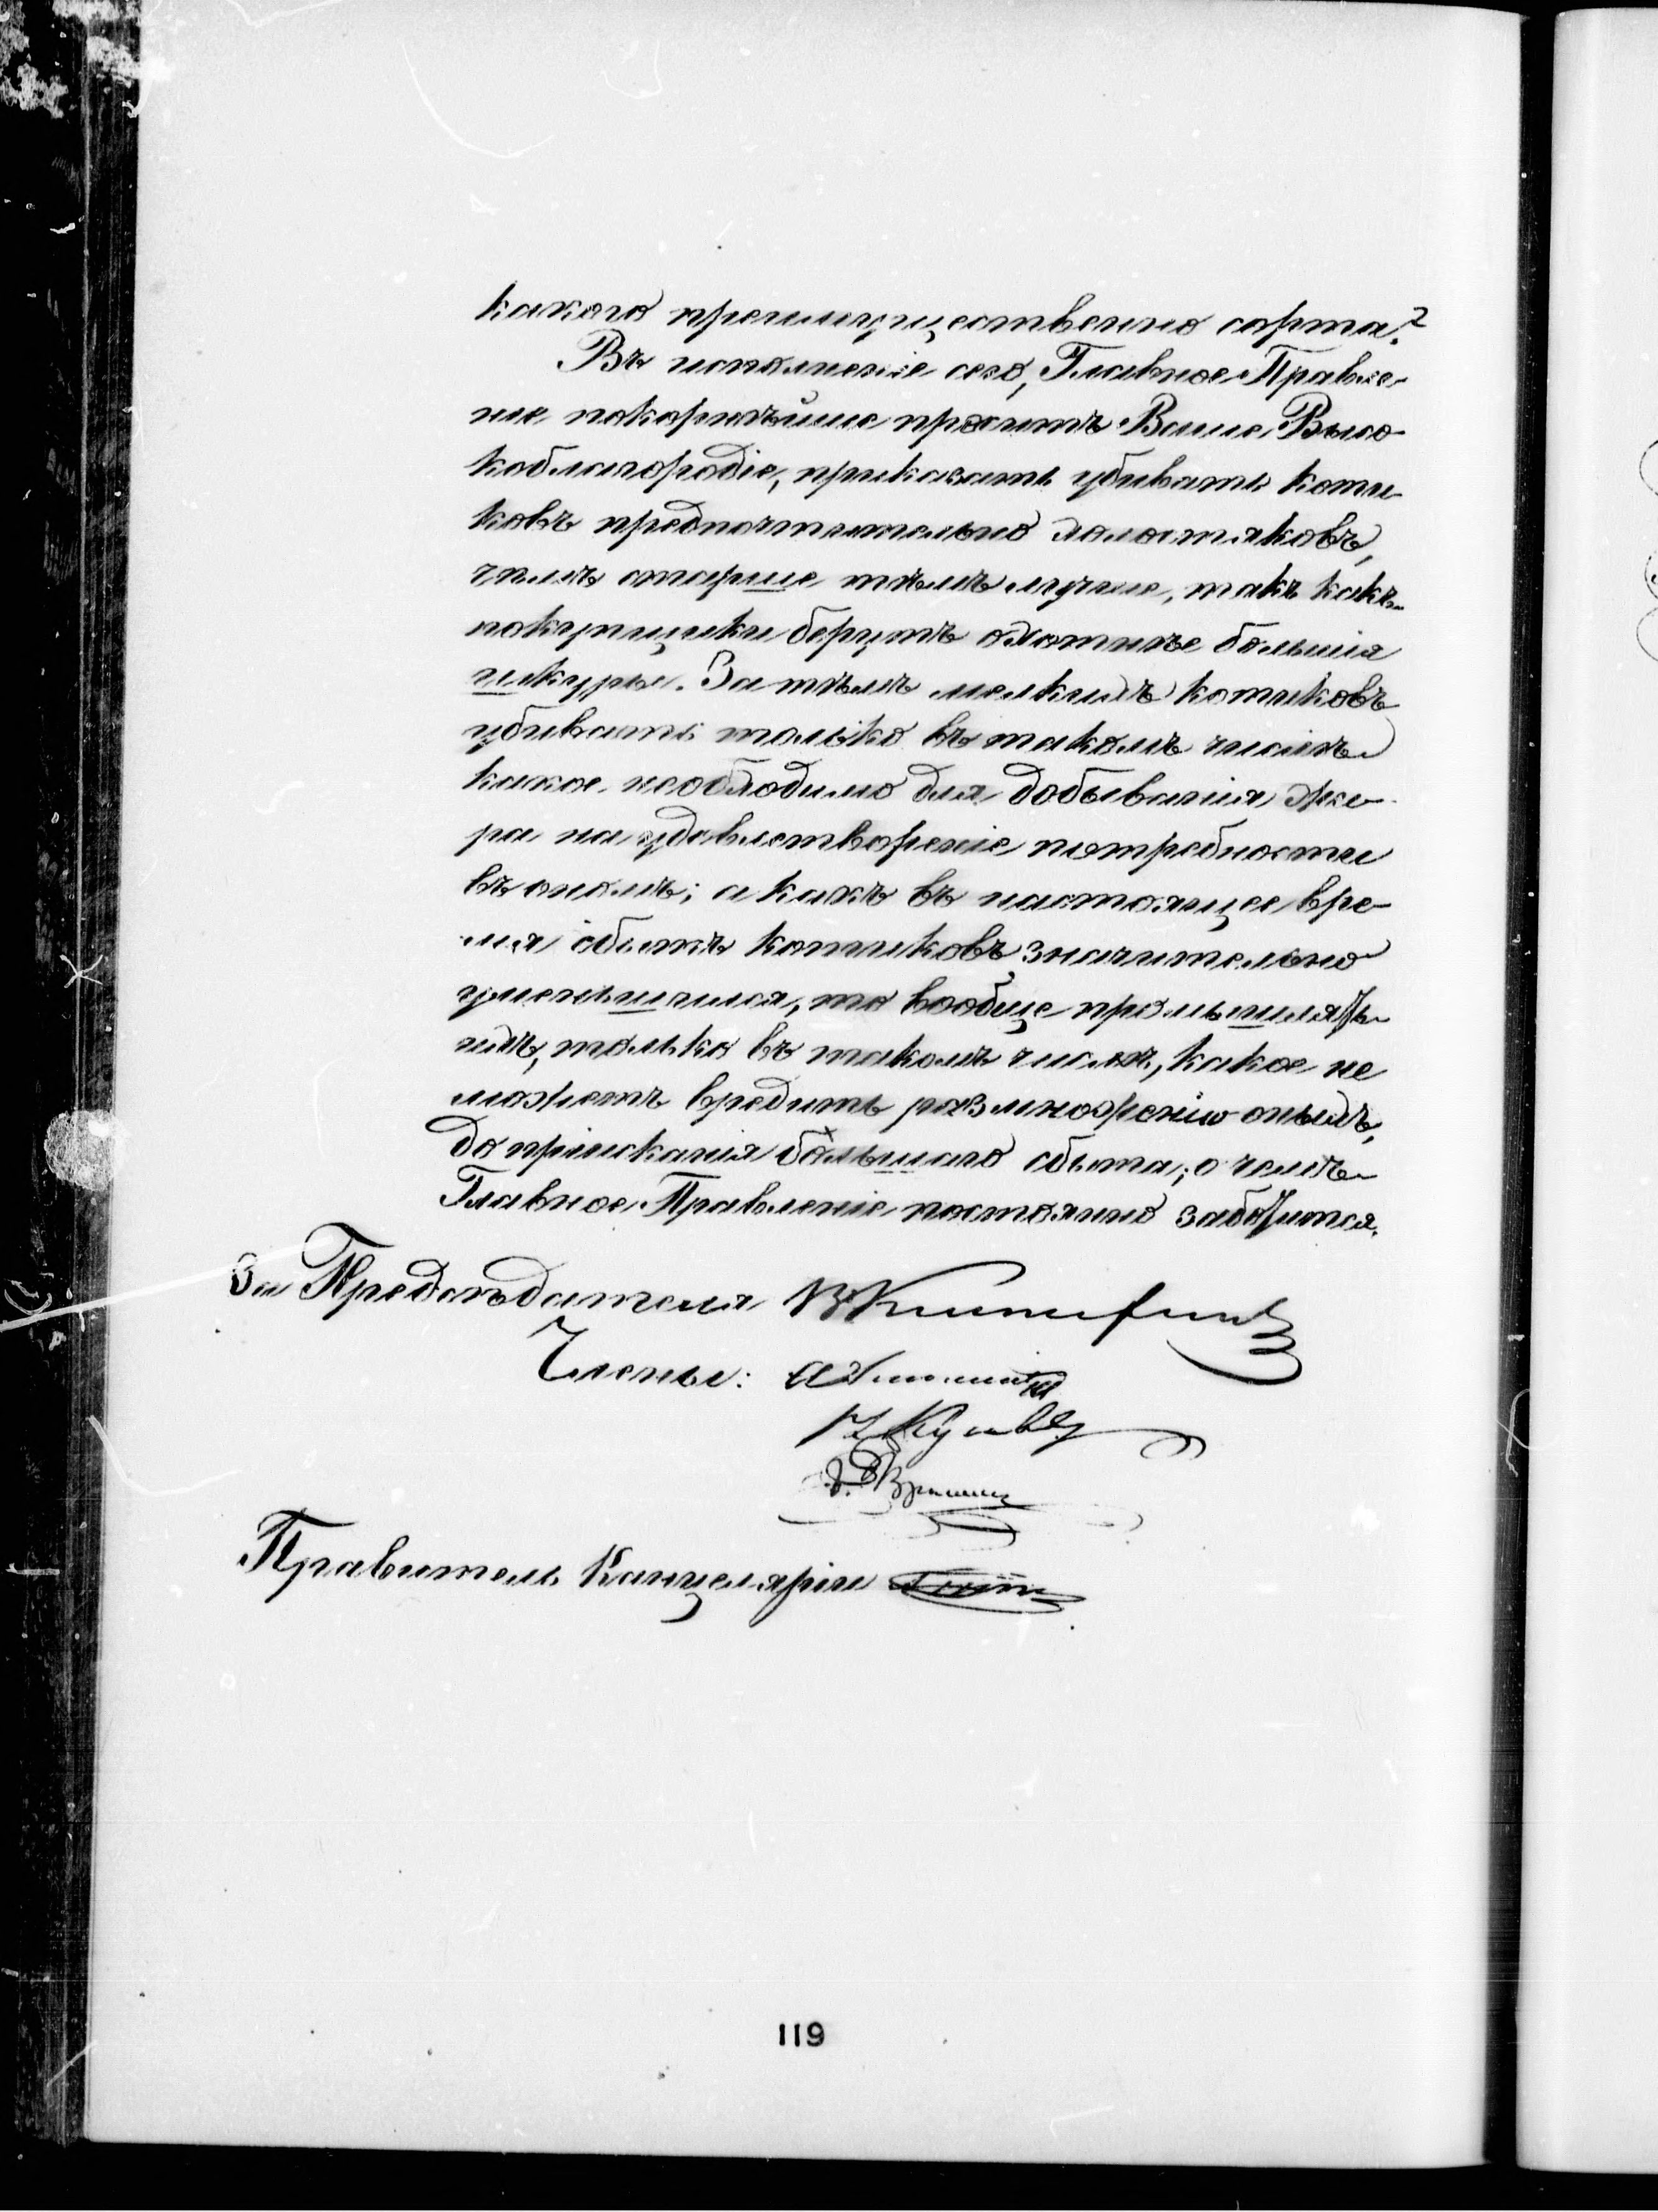 какого преимущественно сорта?
Въ исполненіе сего, Главное Правле-
ніе покорнѣйше проситъ Ваше Высо-
коблагородіе, приказать убивать коти-
ковъ предпочтительно холостяковъ,
чѣмъ старше тѣмъ лучше, такъ какъ
покупщики берутъ охотнѣе большія
шкуры. За тѣмъ мелкихъ котиковъ
убивать только въ такомъ числѣ
какое необходимо для добыванія жи-
ра на удовлетвореніе потребности
въ ономъ; а какъ въ настоящее вре-
мя сбытъ котиковъ значительно
уменьшился, то вообще промышлять
ихъ, только въ такомъ числѣ, какое не
можетъ вредить размноженію оныхъ,
до пріисканія большаго сбыта; о чемъ
Главное Правленіе постоянно заботится.
За Предсѣдателя В Клюпфель
Члены: А Этолинъ
Н. Кусовъ
Ф. Врангель
Правитель Канцеляріи
119